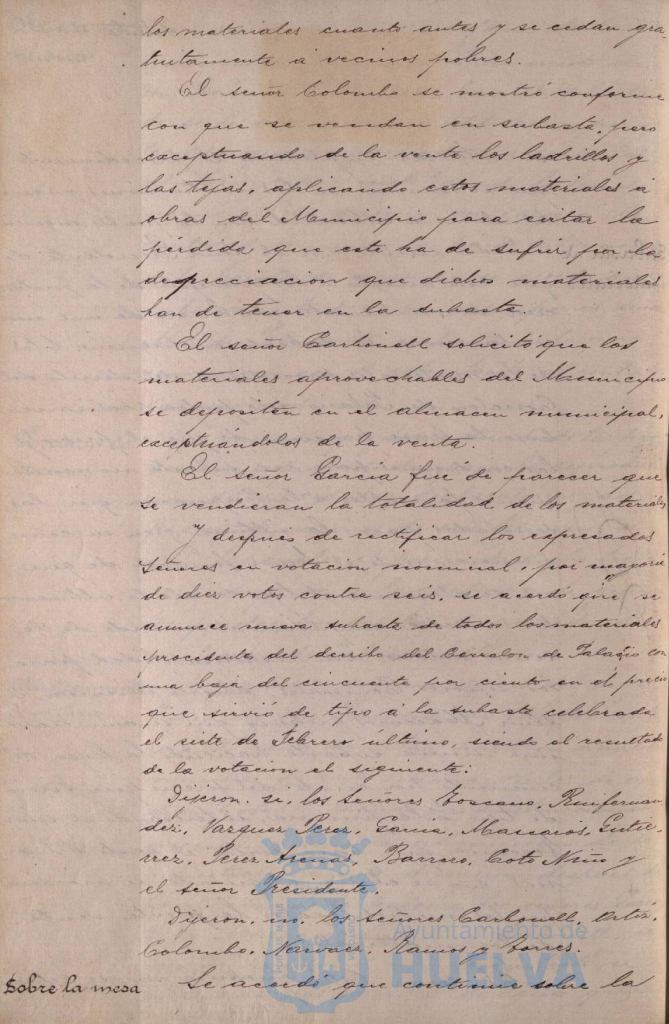 los materiales cuanto antes y se cedan gra-
tuitamente á vecinos pobres.
El señor Colombo se mostró conforme
con que se vendan en subasta, pero
exceptuando de la venta los ladrillos y
las tejas, aplicando estos materiales á
obras del Municipio para evitar la
pérdida que este ha de sufrir por la
depreciacion que dichos materiales
han de tener en la subasta.
El señor Carbonell solicitó que los
materiales aprovechables del Municipio
se depositen en el almacen municipal,
exceptuándolos de la venta.
El señor García fué de parecer que
se vendieran la totalidad de los materiales
Y después de rectificar los expresados
señores en votacion nominal, por mayoria
de diez votos contra seis, se acordó que se
anuncie nueva subasta de todos los materiales
procedentes del derribo del Cerralon de Palacio con
una baja del cincuenta por ciento en el precio
que sirvió de tipo á la subasta celebrada
el siete de Febrero último, siendo el resultado
de la votacion el siguiente:
Dijeron, si, los señores Toscano, Ruifernan-
dez, Vazquez Perez, Garcia, Macarios, Gutie-
rrez, Perez Arenas, Barrero, Coto Niño y
el señor Presidente.
Dijeron, no, los señores Carbonell, Ortiz,
Colombo, Narvaez, Ramos y Torres.
Sobre la mesa Se acordó que continue sobre la
Ayuntamiento de
HUELVA